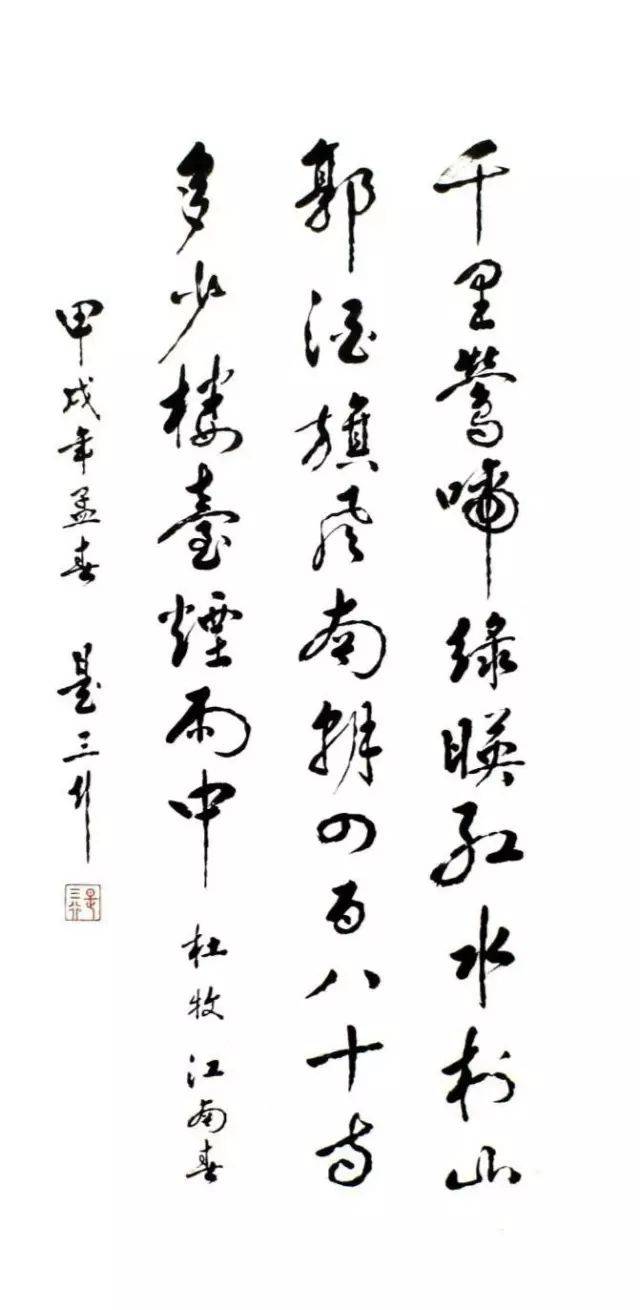 千里鶯啼綠暎紅水村山
郭酒旗風南朝四百八十寺
多少樓臺煙雨中 杜牧 江南春
甲戌年孟春 是三